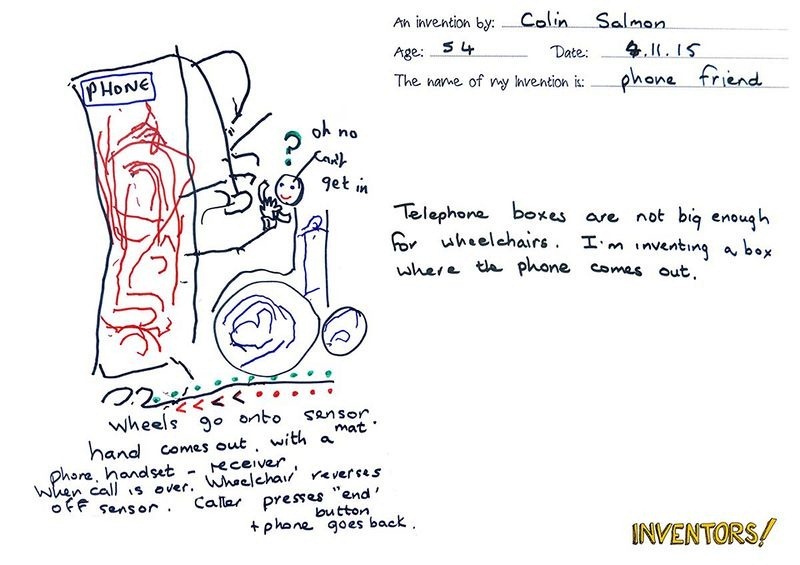 An invention by: Colin Salmon
Age: 54 Date: 4.11.15
The name of my invention is: phone friend
PHONE
?
oh no
can't
get in
Telephone boxes are not big enough
for wheelchairs. I'm inventing a box
where the phone comes out.
wheels go onto sensor
mat.
hand comes out. with a
phone. handset - receiver
When call is over. Wheelchair reverses
off sensor. Caller presses "end'
button
+ phone goes back.
INVENTORS!